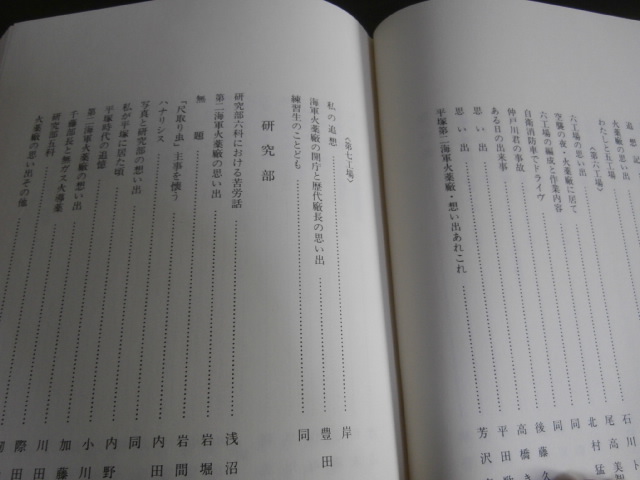 追想記
火薬廠の思い出……石川ト
わたしと五工場……尾高美智
〈第六工場〉
六工場の思い出……北村猛
空襲の夜・火薬廠に居て……同
六工場の編成と作業内容……同
自衛消防車でドライヴ……後藤久
仲戸川君の事故……高橋き
ある日の出来事……平田歌
思い出……芳沢
平塚第二海軍火薬廠・想い出あれこれ
〈第七工場〉
私の追想……岸
海軍火薬廠の開庁と歴代廠長の思い出……豊田
練習生のことども……同
研究部
研究部六科における苦労話……浅沼
第二海軍火薬廠の思い出……岩堀
無題……岩間
『尺取り虫』主事を懐う……内田
ハナリシス……同
写真と研究部の想い出……内野
私が平塚に居た頃……小川
平塚時代の追憶……加藤
第二海軍火薬廠の想い出……川田
千藤部長と無ガス火導薬……際田
研究部五科
火薬廠の思い出その他